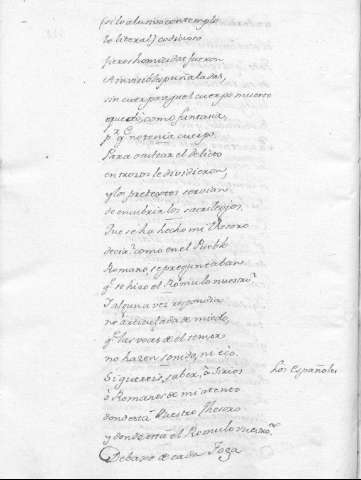 lo literal) codicioso
fieres homicidas fueron
invisibles puñaladas,
sin cuerpo, pues el cuerpo muerto
quedó, como fantasma,
p.r q.e no tenia cuerpo.
Para ocultar el delito
en trozos le dividieron,
y los pretextos servian
de encubrir los sacrilegios.
Que se ha hecho mi Thesoro
decia? como en el Pueblo
Romano, se preguntaban
q.e se hizo el Romulo nuestro?
Y alguna vez respondia
no articulada de miedo,
q.e las voces de el temor
no hazen sonido, ni eco.
Si quereis, saber, ò Sirios
ò Romanos de mi atento
donde está Vuestro Thesoro
y donde está el Romulo vuestro.
Debaxo de cada Toga
Los Españoles